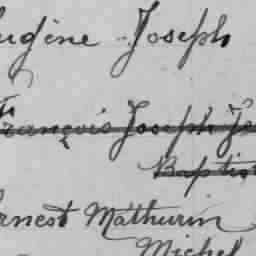 ugène Joseph
François Joseph Je
Baptis
rnest Mathurin
Michel